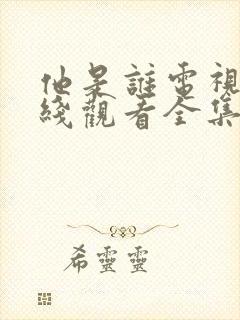 他是誰電視
綫觀看全集
希靈靈